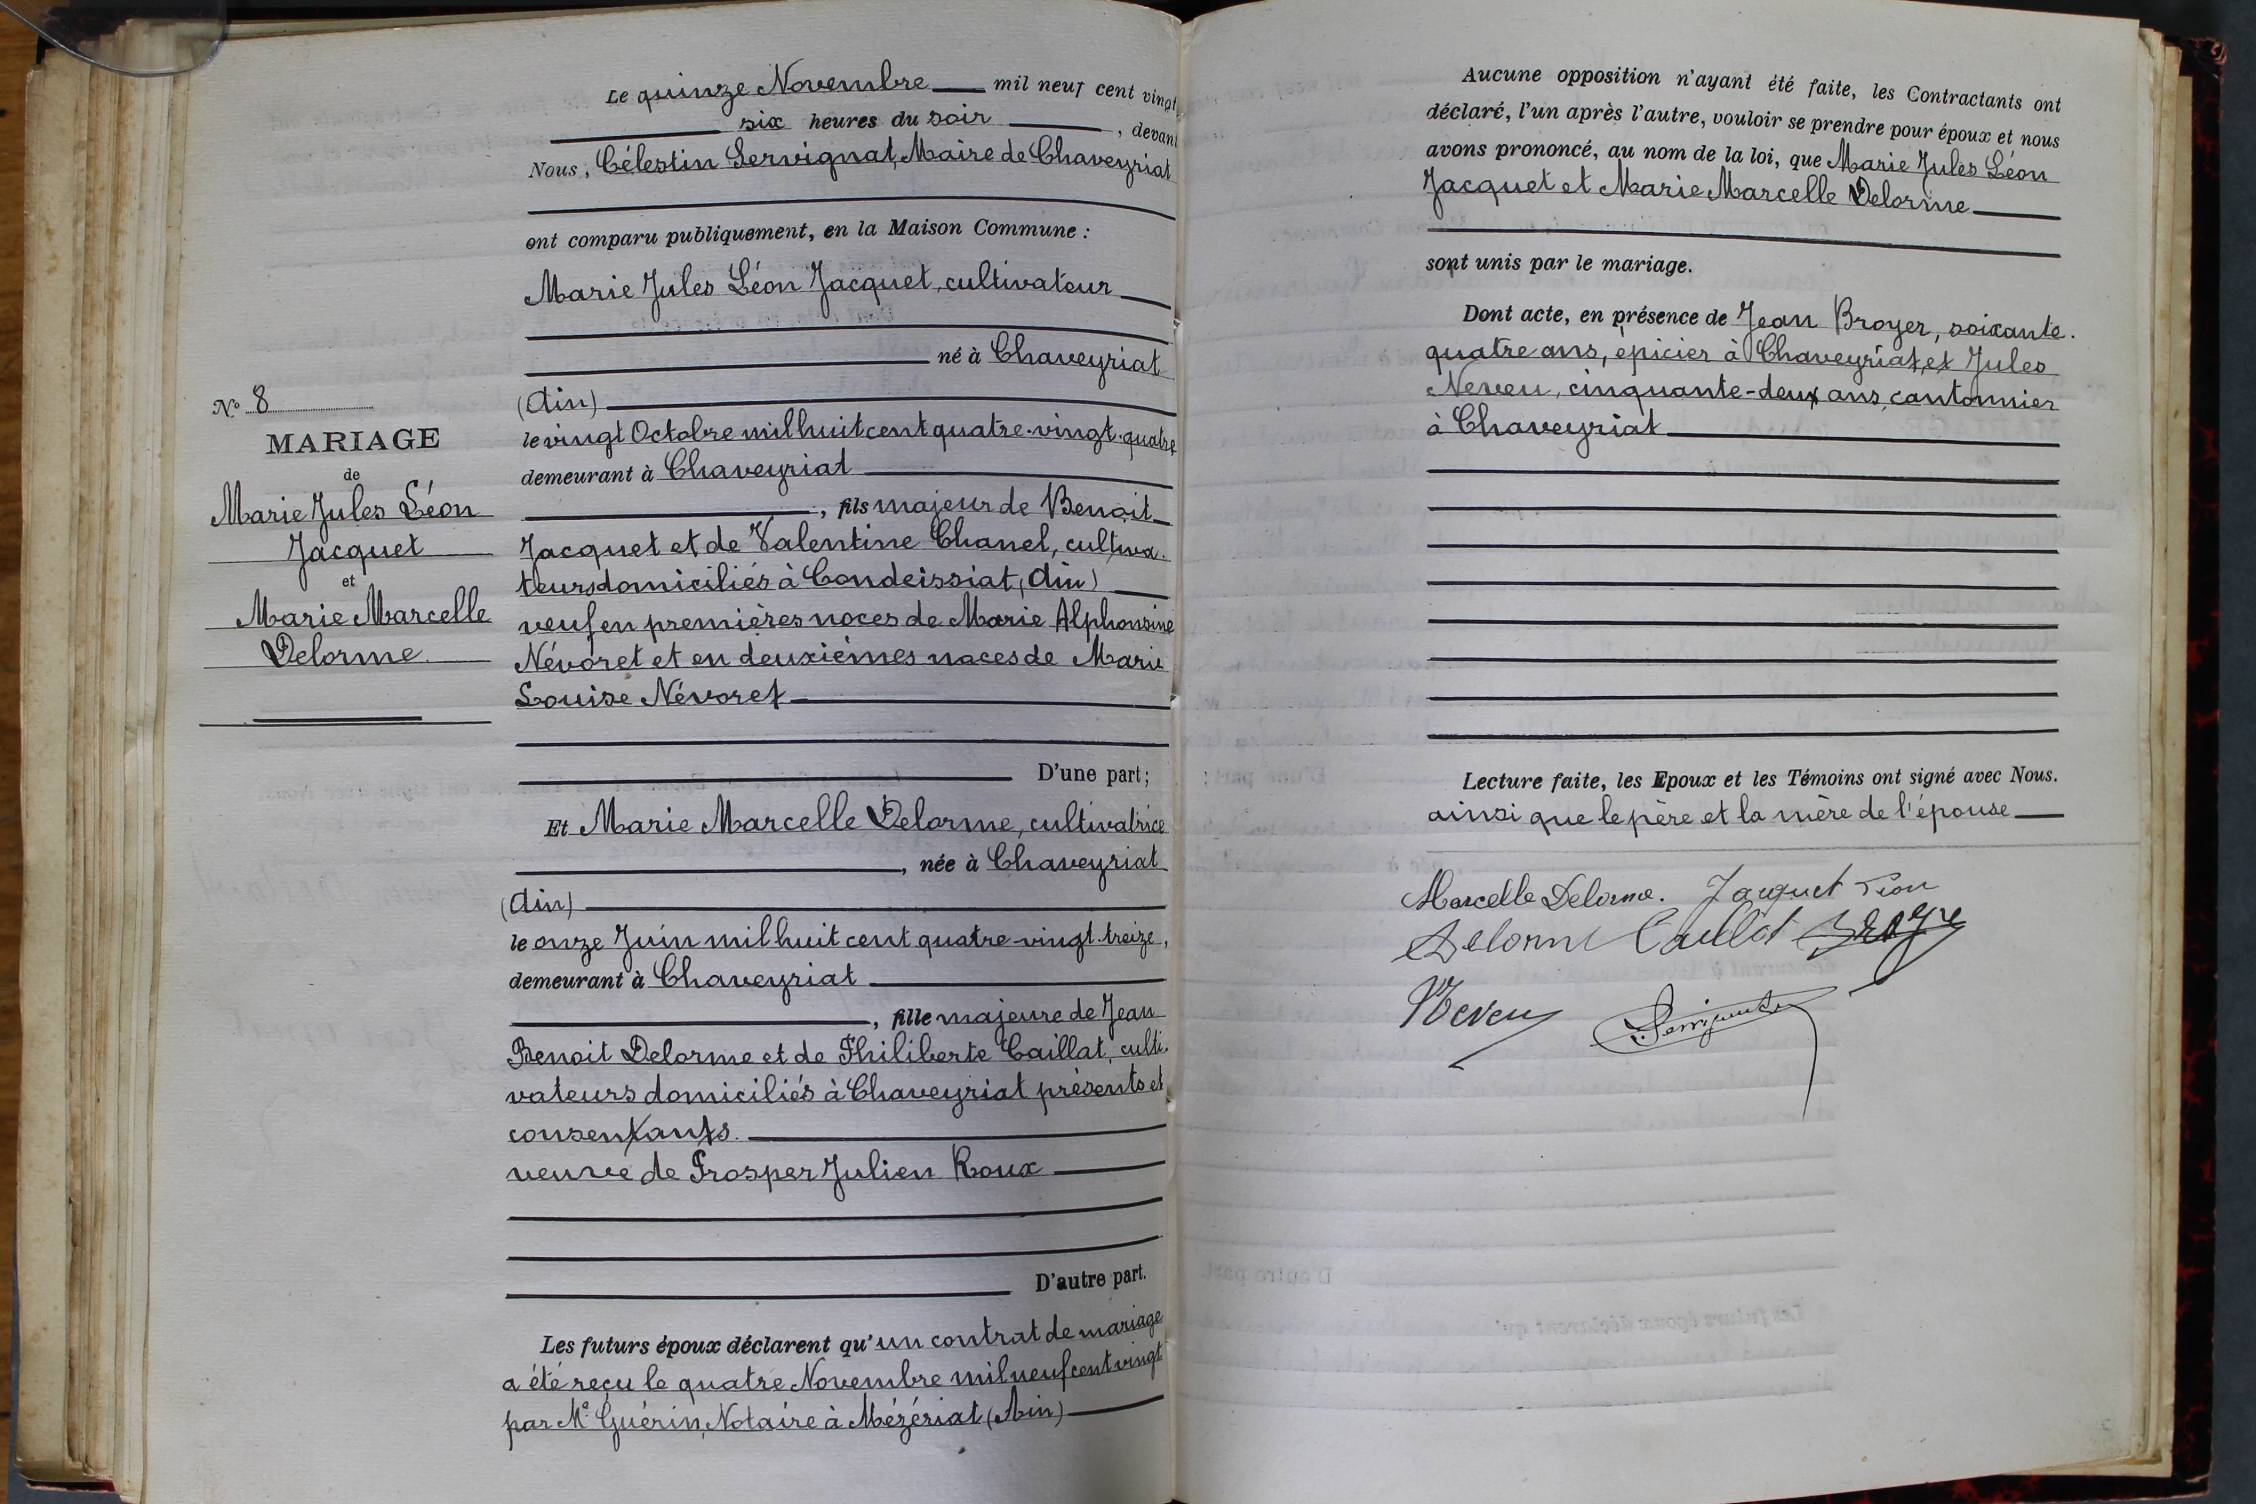 Le quinze Novembre mil neuf cent vingt
six heures du soir, devant
Nous, Célestin Servignat, Maire de Chaveyriat
ont comparu publiquement, en la Maison Commune :
Marie Jules Léon Jacquet, cultivateur
né à Chaveyriat
(Ain)
le vingt Octobre mil huit cent quatre-vingt-quatre
demeurant à Chaveyriat
, fils majeur de Benoit
Jacquet et de Valentine Chanel, cultiva-
teurs domiciliés à Condeissiat (Ain)
veuf en premières noces de Marie Alphonsine
Névoret et en deuxièmes noces de Marie
Louise Névoret
D'une part;
Et Marie Marcelle Delorme, cultivatrice
, née à Chaveyriat
(Ain)
le onze Juin mil huit cent quatre-vingt-treize,
demeurant à Chaveyriat
, fille majeure de Jean
Benoit Delorme et de Philiberte Caillat, culti-
vateurs domiciliés à Chaveyriat présents et
consentants.
veuve de Prosper Julien Roux
D'autre part.
Les futurs époux déclarent qu'un contrat de mariage
a été reçu le quatre Novembre mil neuf cent vingt
par Me Guérin, Notaire à Mézériat (Ain)
No 8
MARIAGE
de
Marie Jules Léon
Jacquet
et
Marie Marcelle
Delorme
Aucune opposition n'ayant été faite, les Contractants ont
déclaré, l'un après l'autre, vouloir se prendre pour époux et nous
avons prononcé, au nom de la loi, que Marie Jules Léon
Jacquet et Marie Marcelle Delorme
sont unis par le mariage.
Dont acte, en présence de Jean Broyer, soixante-
quatre ans, épicier à Chaveyriat, et Jules
Neveu, cinquante-deux ans, cantonnier
à Chaveyriat
Lecture faite, les Epoux et les Témoins ont signé avec Nous.
ainsi que le père et la mère de l'épouse
Marcelle Delorme. Jacquet Léon
Delorme Caillat Broyer
Neveu Servignat